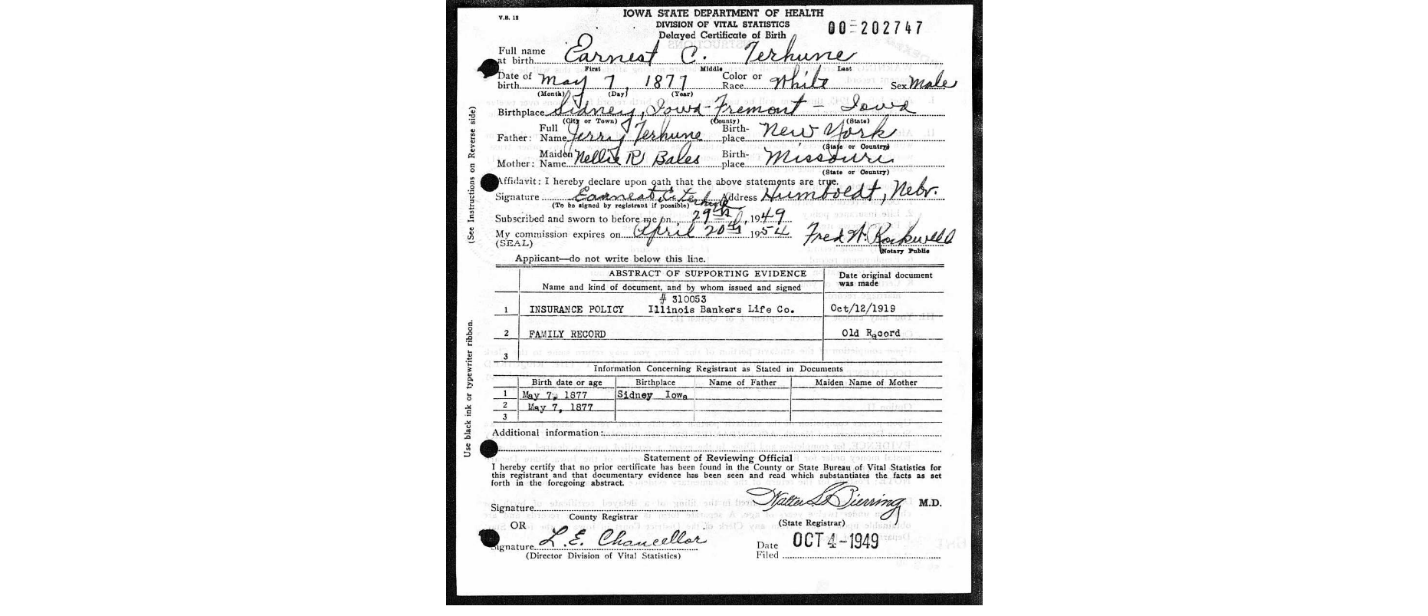 V.S. 12
IOWA STATE DEPARTMENT OF HEALTH
DIVISION OF VITAL STATISTICS
Delayed Certificate of Birth
00-202747
Full name at birth Earnest C. Terhune
First Middle Last
Date of birth May 7, 1877 Color or Race White Sex Male
(Month) (Day) (Year)
Birthplace Sidney, Iowa - Fremont - Iowa
(City or Town) (County) (State)
Father: Full Name Jerry Terhune Birthplace New York
(State or Country)
Mother: Maiden Name Nellie R Bales Birthplace Missouri
(State or Country)
Affidavit: I hereby declare upon oath that the above statements are true.
Signature Earnest C Terhune Address Humboldt, Nebr.
(To be signed by registrant if possible)
Subscribed and sworn to before me on 29th, 1949
My commission expires on April 20th 1954 Fred W. Rockwell
(SEAL) Notary Public
Applicant—do not write below this line.
ABSTRACT OF SUPPORTING EVIDENCE
Name and kind of document, and by whom issued and signed
Date original document was made
# 310053
1 INSURANCE POLICY Illinois Bankers Life Co. Oct/12/1919
2 FAMILY RECORD Old Racord
3
Information Concerning Registrant as Stated in Documents
Birth date or age Birthplace Name of Father Maiden Name of Mother
1 May 7, 1877 Sidney Iowa
2 May 7, 1877
3
Additional information:
Statement of Reviewing Official
I hereby certify that no prior certificate has been found in the County or State Bureau of Vital Statistics for
this registrant and that documentary evidence has been seen and read which substantiates the facts as set
forth in the foregoing abstract.
Signature Walter L. Bierring M.D.
County Registrar (State Registrar)
OR
Signature L. E. Chancellor Date Filed OCT 4-1949
(Director Division of Vital Statistics)
(See Instructions on Reverse side)
Use black ink or typewriter ribbon.